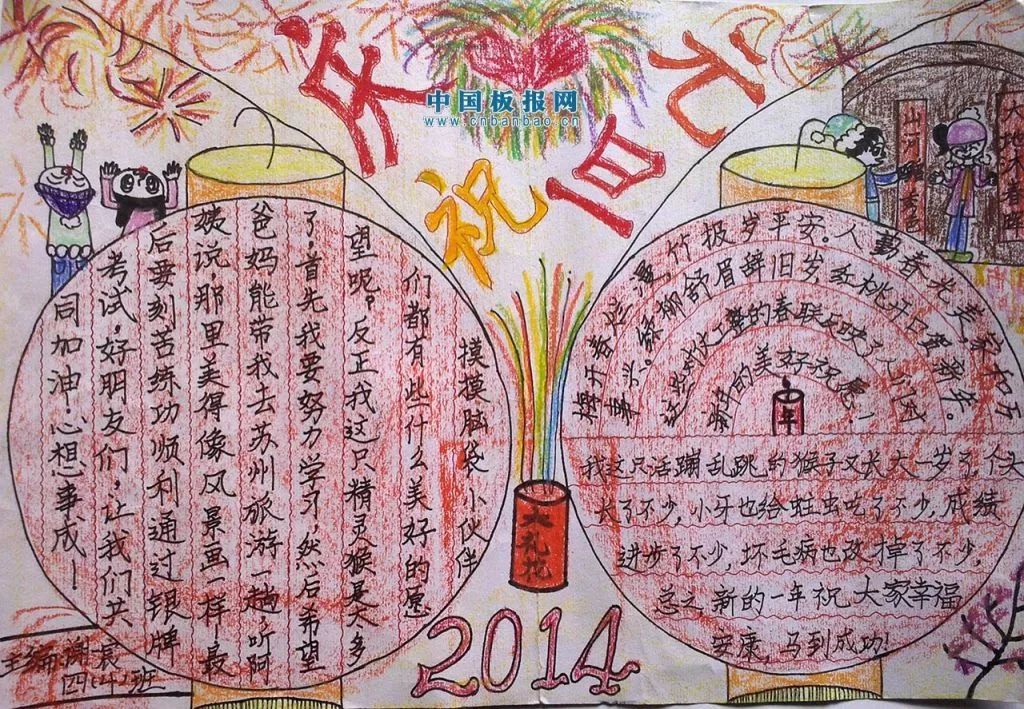 中国板报网
www.cnbanbao.cn
庆祝元旦
大地沐春晖
山河秀色
摸摸脑袋小伙伴
们都有些什么美好的愿
望呢。反正我这只精灵猴是太多
了，首先我要努力学习，然后希望
爸妈能带我去苏州旅游一趟，听阿
姨说，那里美得像风景画一样，最
后要刻苦练功顺利通过银牌
考试，好朋友们，让我们共
同加油，心想事成！
梅开春烂漫竹报岁平安。人勤春光美家和万
事兴。绿柳舒眉辞旧岁，红桃开口贺新年。
这些对仗工整的春联反映了人们对
新年的美好祝愿！
年
我这只活蹦乱跳的猴子又长大一岁了，个头
长了不少，小牙也给蛀虫吃了不少，成绩
进步了不少，坏毛病也改掉了不少，
总之新的一年祝大家幸福
安康，马到成功！
大礼花
2014
主编
四(4)班